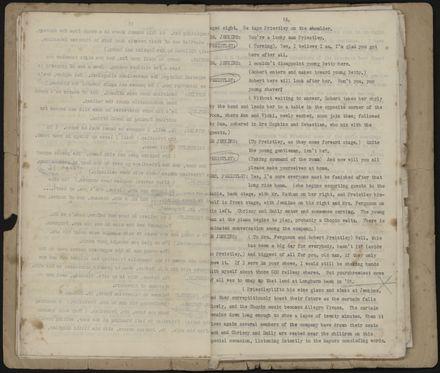 14.
aged eight. He taps Priestley on the shoulder.
JENKINS: You're a lucky man Priestley.
PRIESTLEY: ( Turning). Yes, I believe I am. I'm glad you got
here after all.
JENKINS: I couldn't disappoint young Betty here.
(Robert enters and makes toward young Betty.)
PRIESTLEY: Robert here will look after her. Won't you, you
young shaver?
( Without waiting to answer, Robert takes her shyly
by the hand and leads her to a table in the opposite corner of the
room, where Ann and Vicki, newly seated, soon join them, followed
by Sam, ushered in by Mrs Hopkins and Sebastian, who mix with the
guests.)
JENKINS: (To Priestley, as they come forward stage.) Quite
the young gentleman, isn't he?
PRIESTLEY: (Taking command of the room) And now will you all
please make yourselves at home.
Yes, I'm sure everyone must be famished after that
long ride home. (She begins escorting guests to the
table, back stage, with Mr. Fatham on her right, and Priestley him-
self in front stage, with Jenkins on his right and Mrs. Ferguson on
his left. Chrissy and Emily enter and commence serving. The young
man at the piano begins to play, probably a Chopin waltz. There is
animated conversation among the company.)
JENKINS: ( To Mrs. Ferguson and Robert Priestley) Well, this
has been a big day for everybody, hasn't it? (aside
to Priestley,) And biggest of all for you, old man, if they only
knew it. If I were in your shoes, I would still be shaking hands
with myself about those 600 railway shares. But your shrewdest move
of all was to snap up that land at Longburn back in '75.
( Priestley lifts his wine glass and winks at Jenkins,
and they surreptitiously toast their future as the curtain falls
slowly, and the Chopin music becomes Allegro Vivace. The curtain
remains down long enough to show a lapse of twenty minutes. When it
rises again several members of the company have drawn their seats
back and Chrissy and Emily are seated near the children on this
special occasion, listening intently to the Mayor's concluding words.